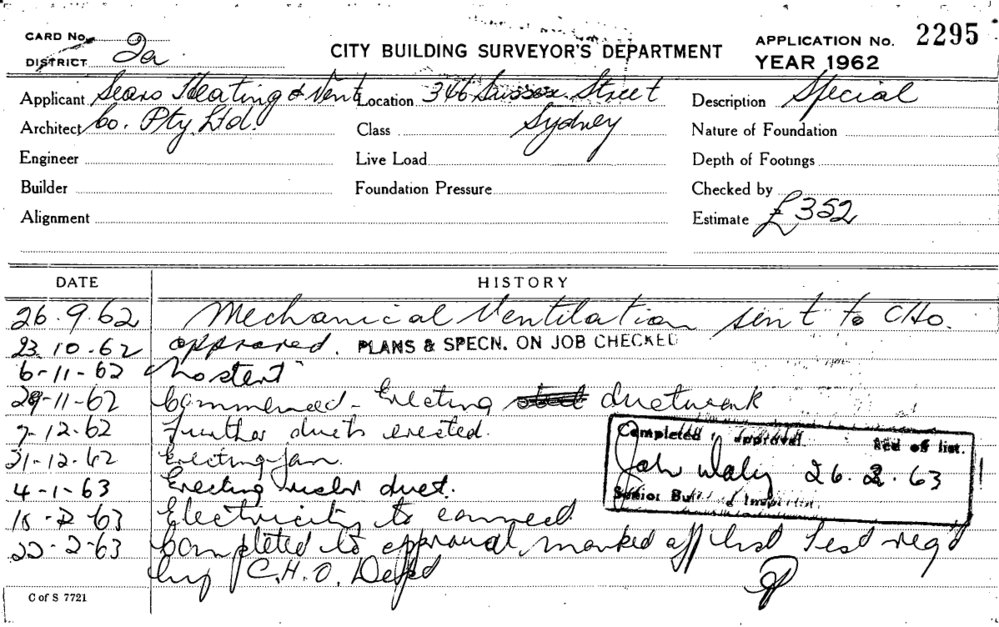 CARD No. 2a
DISTRICT
CITY BUILDING SURVEYOR'S DEPARTMENT
APPLICATION No. 2295
YEAR 1962
Applicant Sears Heating & Vent
Location 346 Sussex Street
Description Special
Architect Co. Pty. Ltd.
Class Sydney
Nature of Foundation
Engineer
Live Load
Depth of Footings
Builder
Foundation Pressure
Checked by
Alignment
Estimate £352
DATE HISTORY
26.9.62 Mechanical Ventilation sent to CHO.
23.10.62 approved. PLANS & SPECN. ON JOB CHECKED
6-11-62 No start
29-11-62 Commenced - Erecting ductwork
7-12-62 Further ducts erected.
31-12-62 Erecting fan.
4-1-63 Erecting duct.
15-2-63 Electricity to connect
22-2-63 Completed to approval, marked off list Test req'd
by C.H.O. Dept
Completed approval off list.
26.2.63
Senior
C of S 7721